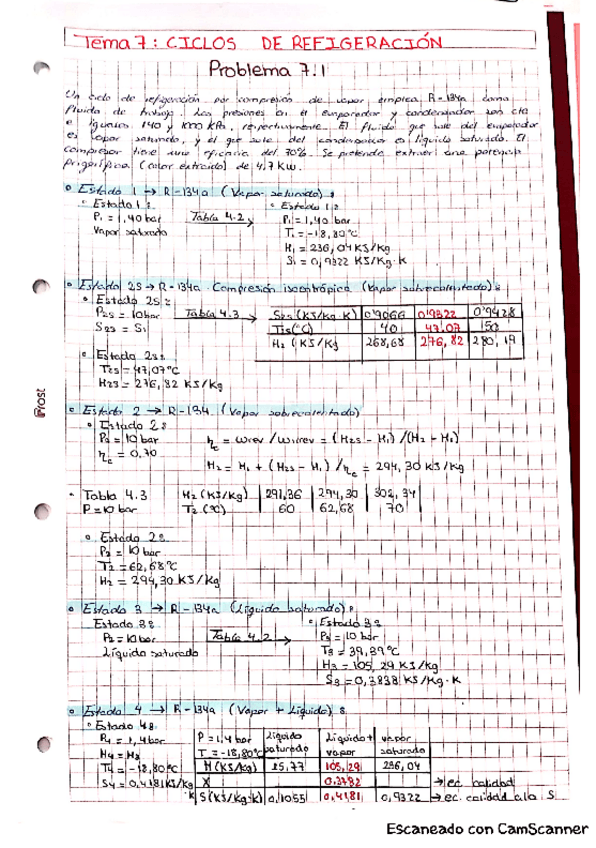 Tema 7: CICLOS DE REFIGERACIÓN
Problema 7.1
Un ciclo de refigeración por compresión de vapor emplea R-134a como
fluido de trabajo. Las presiones en el evaporador y condensador son cte
e iguales 140 y 1000 KPa, respectivamente. El fluido que sale del evaporador
es vapor saturado, y el que sale del condensador es líquido saturado. El
compresor tiene una eficacia del 70%. Se pretende extraer una potencia
frigorífica (calor extraído) de 4,7 KW.
Estado 1 → R-134a (Vapor saturado):
Estado 1: Estado 1:
P₁ = 1,40 bar Tabla 4.2 → P₁ = 1,40 bar
Vapor saturado T₁ = -18,80°C
H₁ = 236,04 KJ/Kg
S₁ = 0,9322 KJ/Kg·K
Estado 2S → R-134a Compresión isoentrópica (Vapor sobrecalentado):
Estado 2S:
P2s = 10bar Tabla 4.3 → S2s (KJ/Kg·K) 0'9066 0'9322 0'9428
S2s = S₁ T2s (°C) 40 47,07 50
H₂ (KJ/Kg) 268,68 276,82 280,19
Estado 2s:
T2s = 47,07°C
H2s = 276,82 KJ/Kg
Prost
Estado 2 → R-134 (Vapor sobrecalentado)
Estado 2:
P₂ = 10 bar ηc = wrev / wirrev = (H2s - H₁) / (H₂ - H₁)
ηc = 0,70
H₂ = H₁ + (H2s - H₁) / ηc = 294,30 KJ/Kg
Tabla 4.3 H₂ (KJ/Kg) 291,36 294,30 302,34
P = 10 bar T₂ (°C) 60 62,68 70
Estado 2:
P₂ = 10 bar
T₂ = 62,68°C
H₂ = 294,30 KJ/Kg
Estado 3 → R-134a (Líquido saturado):
Estado 3: Estado 3:
P₃ = 10 bar Tabla 4.2 → P₃ = 10 bar
Líquido saturado T₃ = 39,39°C
H₃ = 105,29 KJ/Kg
S₃ = 0,3838 KJ/Kg·K
Estado 4 → R-134a (Vapor + Líquido):
Estado 4:
P₄ = 1,4bar P = 1,4 bar Líquido Líquido + vapor
H₄ = H₃ T = -18,80°C saturado vapor saturado
T₄ = -18,80°C H (KJ/Kg) 25,77 105,29 236,04
S₄ = 0,4181 KJ/Kg·K X 0,3782 → ec. calidad
S (KJ/Kg·K) 0,1055 0,4181 0,9322 → ec. calidad a la S
Escaneado con CamScanner